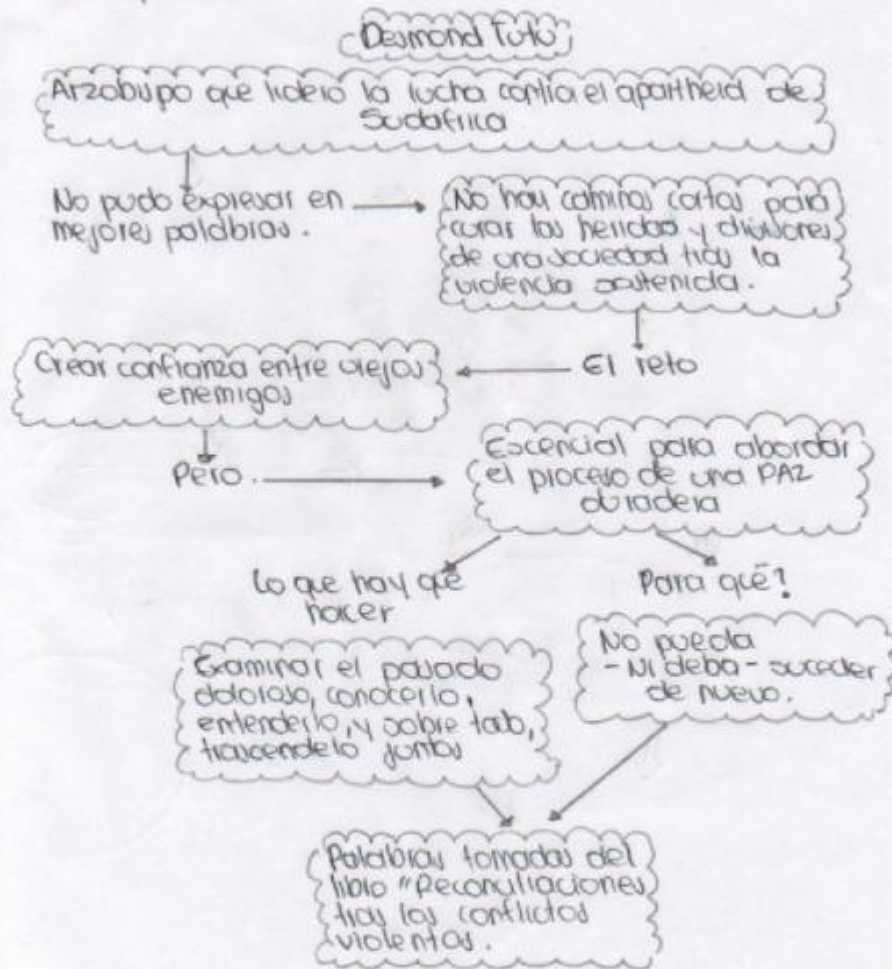 Desmond Tutu
Arzobispo que lideró la lucha contra el apartheid de
Sudáfrica
No pudo expresar en
mejores palabras.
No hay caminos cortos para
curar las heridas y divisiones
de una sociedad tras la
violencia sostenida.
El reto
Crear confianza entre viejos
enemigos
Pero.
Escencial para abordar
el proceso de una PAZ
duradera
Lo que hay que
hacer
Para qué?
Examinar el pasado
doloroso, conocerlo,
entenderlo, y sobre todo,
trascendelo juntos
No pueda
-Ni deba- suceder
de nuevo.
Palabras tomadas del
libro "Reconciliaciones
tras los conflictos
violentos.